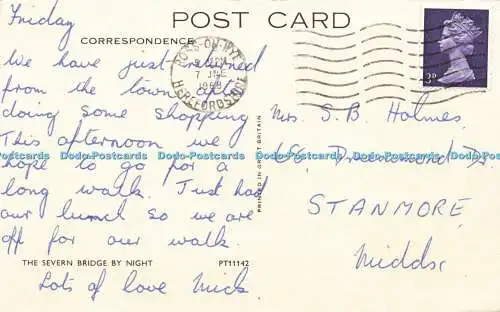 Friday
POST CARD
CORRESPONDENCE
We have just returned
from the town after
doing some shopping
This afternoon we
hope to go for a
long walk. Just had
our lunch so we are
off for our walk.
THE SEVERN BRIDGE BY NIGHT PT11142
Lots of love Mick
PRINTED IN GREAT BRITAIN
ROSS-ON-WYE
7 JNE
1968
HEREFORDSHIRE
3D
Mrs. S.B. Holmes
Drummond Dr.
STANMORE
Middx
Dodo-Postcards Dodo-Postcards Dodo-Postcards Dodo-Postcards